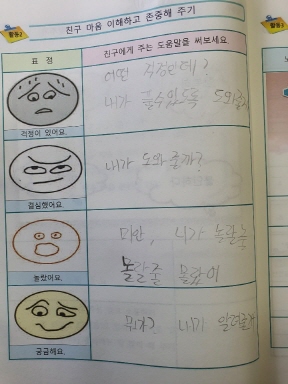 활동2
친구 마음 이해하고 존중해 주기
활동2
표 정
친구에게 주는 도움말을 써보세요.
어떤 걱정인데?
내가 풀수있도록 도와줄게
걱정이 있어요.
내가 도와줄까?
결심했어요.
미안, 니가 놀랄줄 몰랐어
놀랐어요.
뭐가? 내가 알려줄게
궁금해요.